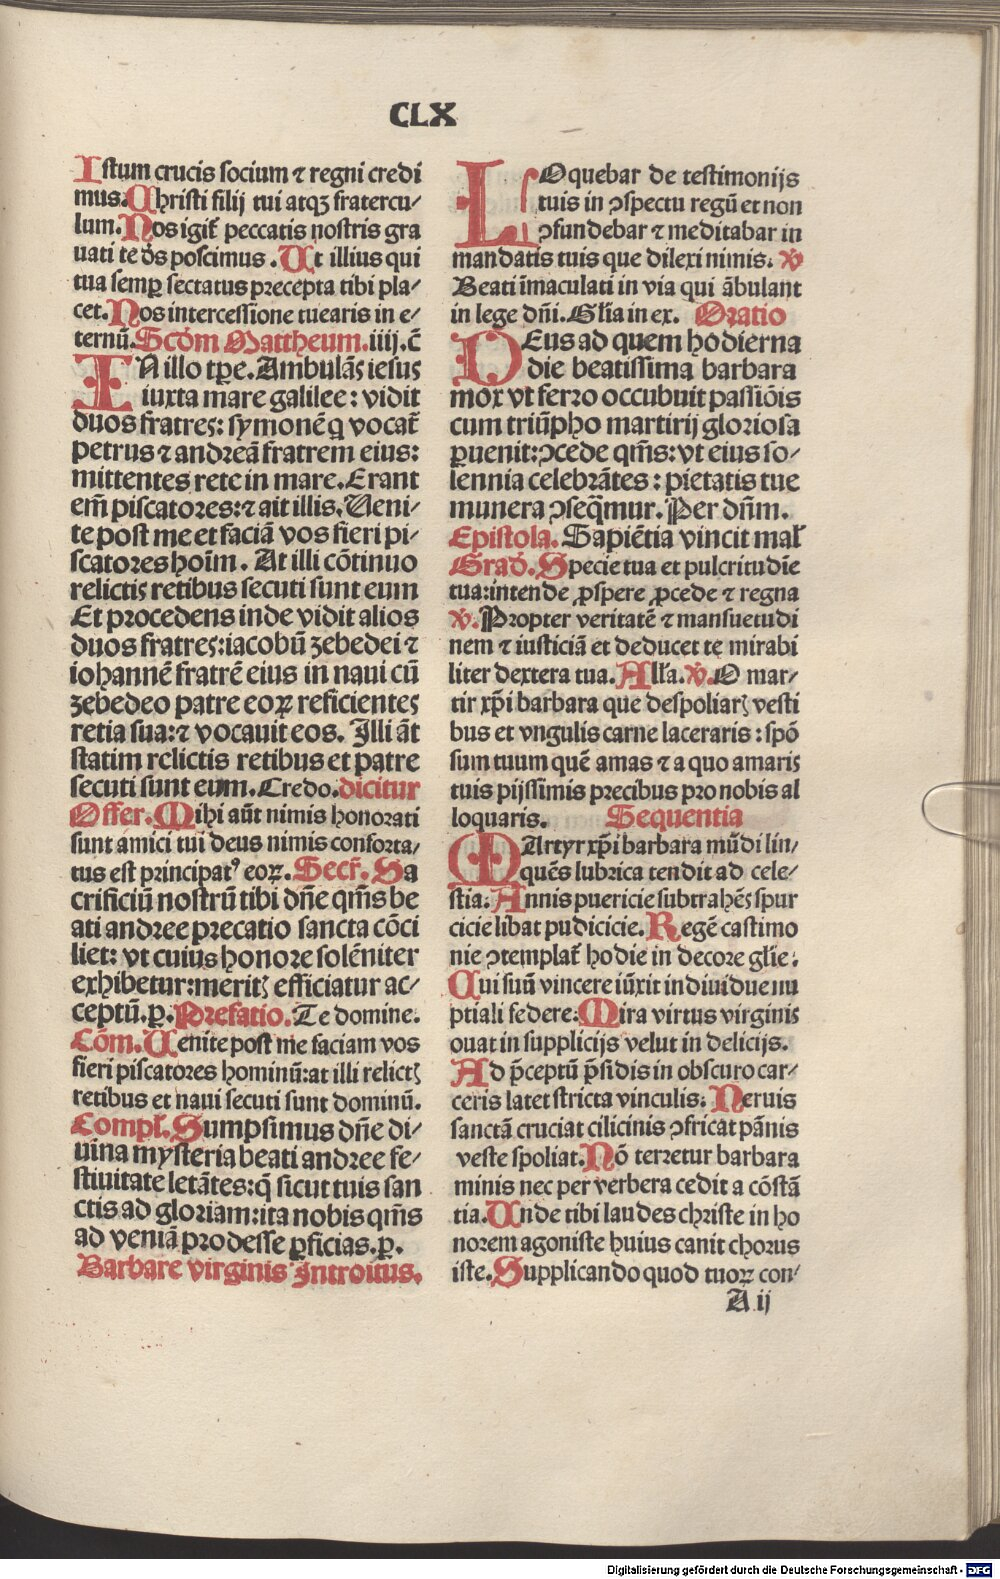 CLX
Istum crucis socium ⁊ regni credi
mus. Christi filij tui atqꝫ fratercu⸗
lum. Nos igit̃ peccatis nostris gra
uati te ds̄ poscimus. Ut illius qui
tua semꝑ sectatus precepta tibi pla⸗
cet. Nos intercessione tuearis in e⸗
ternū. Scd̄m Mattheum. iiij. c̄
IN illo tꝑe. Ambulās iesus
iuxta mare galilee: vidit
duos fratres: symonē q̄ vocat̃
petrus ⁊ andreā fratrem eius:
mittentes rete in mare. Erant
em̄ piscatores: ⁊ ait illis. Ueni⸗
te post me et faciā vos fieri pi⸗
scatores hoīm. At illi cōtinuo
relictis retibus secuti sunt eum
Et procedens inde vidit alios
duos fratres: iacobū zebedei ⁊
iohannē fratrē eius in naui cū
zebedeo patre eoꝝ reficientes
retia sua: ⁊ vocauit eos. Illi āt
statim relictis retibus et patre
secuti sunt eum. Credo. dicitur
Offer. Mihi aūt nimis honorati
sunt amici tui deus nimis conforta⸗
tus est principatꝰ eoꝝ. Secr̄. Sa
crificiū nostrū tibi dn̄e qm̄s be
ati andree precatio sancta cōci
liet: vt cuius honore solēniter
exhibetur: meritꝭ efficiatur ac⸗
ceptū. ꝑ. Prefatio. Te domine.
Cōm. Uenite post me faciam vos
fieri piscatores hominū: at illi relictꝭ
retibus et naui secuti sunt dominū.
Compl̄. Sumpsimus dn̄e di⸗
uina mysteria beati andree fe⸗
stiuitate letātes: q̄ sicut tuis san
ctis ad gloriam: ita nobis qm̄s
ad veniā prodesse ꝑficias. ꝑ.
Barbare virginis Introitus.
LOquebar de testimonijs
tuis in ↄspectu regū et non
ↄfundebar ⁊ meditabar in
mandatis tuis que dilexi nimis. ℣
Beati īmaculati in via qui ābulant
in lege dn̄i. Gl̄ia in ex. Oratio
DEus ad quem hodierna
die beatissima barbara
mox vt ferro occubuit passiōis
cum triūpho martirij gloriosa
ꝑuenit: ↄcede qm̄s: vt eius so⸗
lennia celebrātes: pietatis tue
munera ↄseq̄mur. Per dn̄m.
Epistola. Sapiētia vincit mal̄
Grad̄. Specie tua et pulcritudīe
tua: intende ꝓspere ꝓcede ⁊ regna
℣. Propter veritatē ⁊ mansuetudi
nem ⁊ iusticiā et deducet te mirabi
liter dextera tua. All̄a. ℣. O mar⸗
tir xp̄i barbara que despoliarꝭ vesti
bus et vngulis carne laceraris: spō
sum tuum quē amas ⁊ a quo amaris
tuis pijssimis precibus pro nobis al
loquaris. Sequentia
MArtyr xp̄i barbara mūdi lin⸗
quēs lubrica tendit ad cele⸗
stia. Annis puericie subtrahēs spur
cicie libat pudicicie. Regē castimo
nie ↄtemplat̄ hodie in decore gl̄ie.
Cui suū vincere iūxit indiuidue nu
ptiali federe: Mira virtus virginis
ouat in supplicijs velut in delicijs.
Ad p̄ceptū p̄sidis in obscuro car⸗
ceris latet stricta vinculis. Neruis
sanctā cruciat cilicinis ↄfricat pānis
veste spoliat. Nō terretur barbara
minis nec per verbera cedit a cōstā
tia. Unde tibi laudes christe in ho
norem agoniste huius canit chorus
iste. Supplicando quod tuoꝝ con⸗
A ij
Digitalisierung gefördert durch die Deutsche Forschungsgemeinschaft - DFG